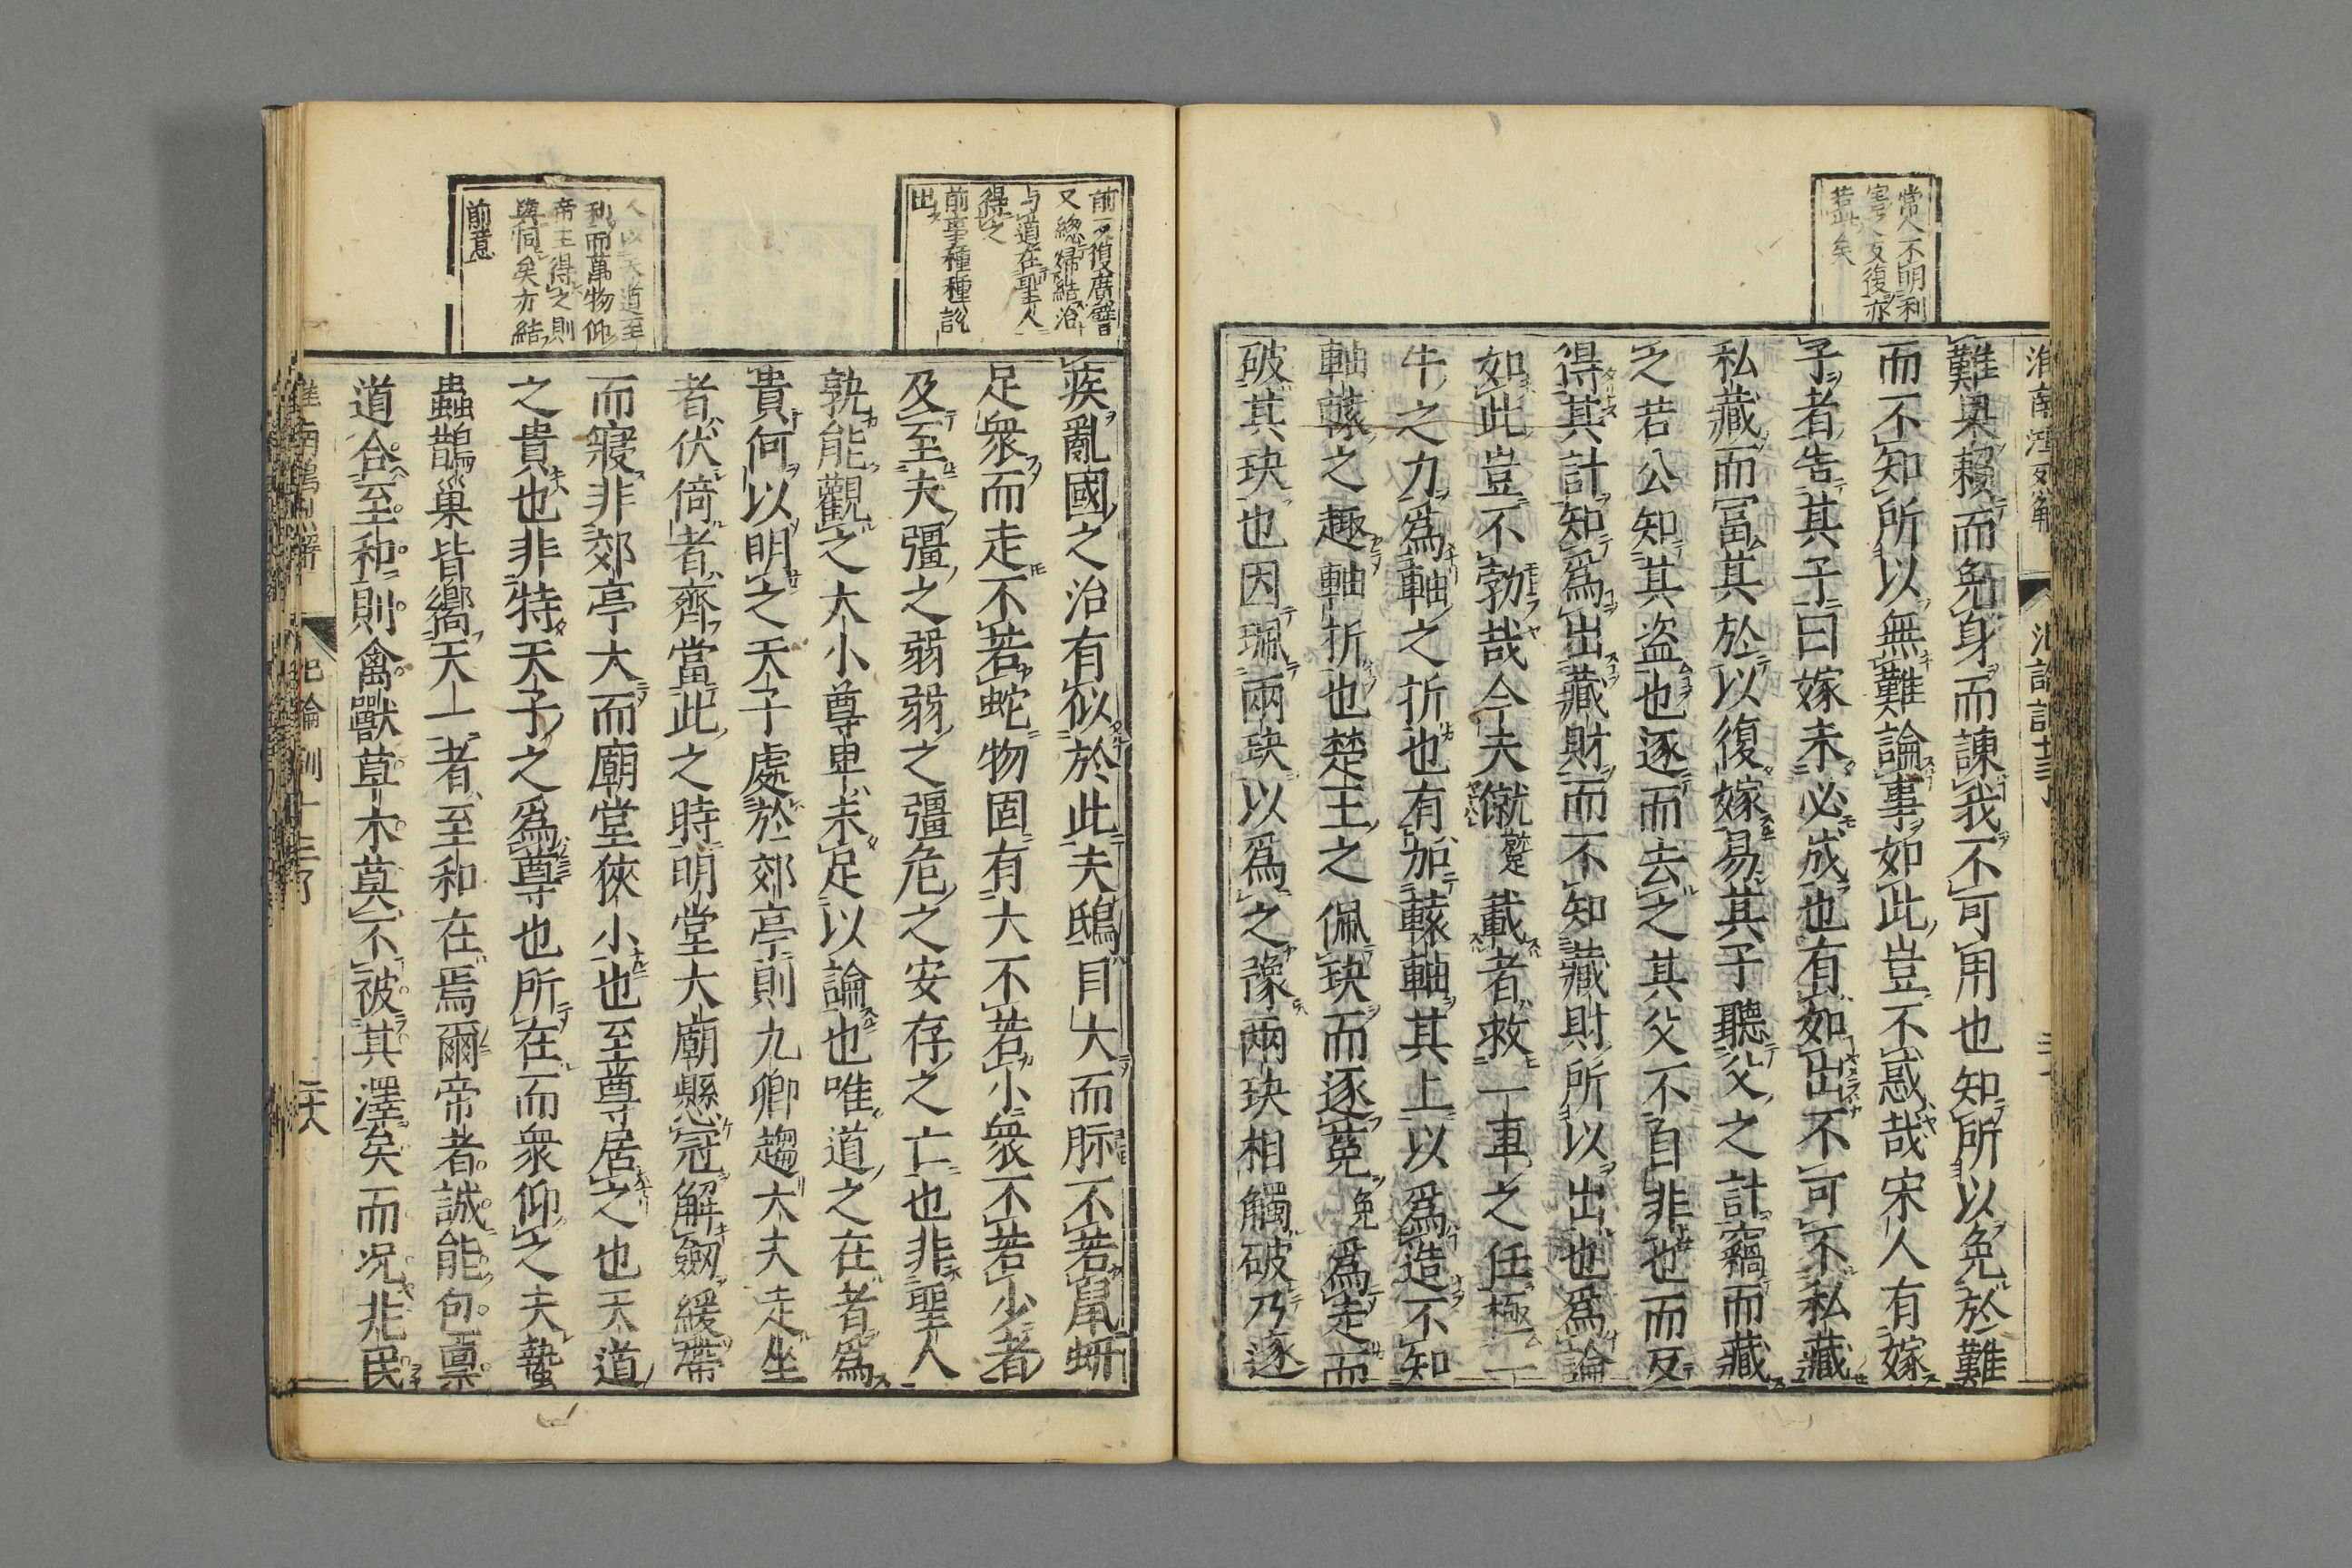 常人不明利
害之反復亦
若此矣
難臭賴而免身而諫我不可用也知所以免於難
而不知所以無難論事如此豈不惑哉宋人有嫁
子者告其子曰嫁未必成也有如出不可不私藏
私藏而富其於以復嫁易其子聽父之計竊而藏
之若公知其盗也逐而去之其父不自非也而反
得其計知爲出藏財而不知藏財所以出也爲論
如此豈不勃哉今夫僦載者救一車之任極一
牛之力爲軸之折也有加轅軸其上以爲造不知
軸轅之趣軸折也楚王之佩玦而逐菟爲走而
破其玦也因珮兩玦以爲之豫兩玦相觸破乃逐
前反復廣譬
又總歸結治
与道在聖人
得之
前事種種説
出
疾亂國之治有似於此夫鴟目大而眎不若鼠蚈
足衆而走不若蛇物固有大不若小衆不若少者
及至夫彊之弱弱之彊危之安存之亡也非聖人
孰能觀之大小尊卑未足以論也唯道之在者爲
貴何以明之天子處於郊亭則九卿趨大夫走坐
者伏倚者齊當此之時明堂大廟懸冠解劔緩帶
而寢非郊亭大而廟堂狹小也至尊居之也天道
之貴也非特天子之爲尊也所在而衆仰之夫蟄
蟲鵲巢皆嚮天一者至和在焉爾帝者誠能包禀
道合至和則禽獸草木莫不被其澤矣而况兆民
人以天道至
利而萬物仰
帝王得之則
與同矣方結
前意